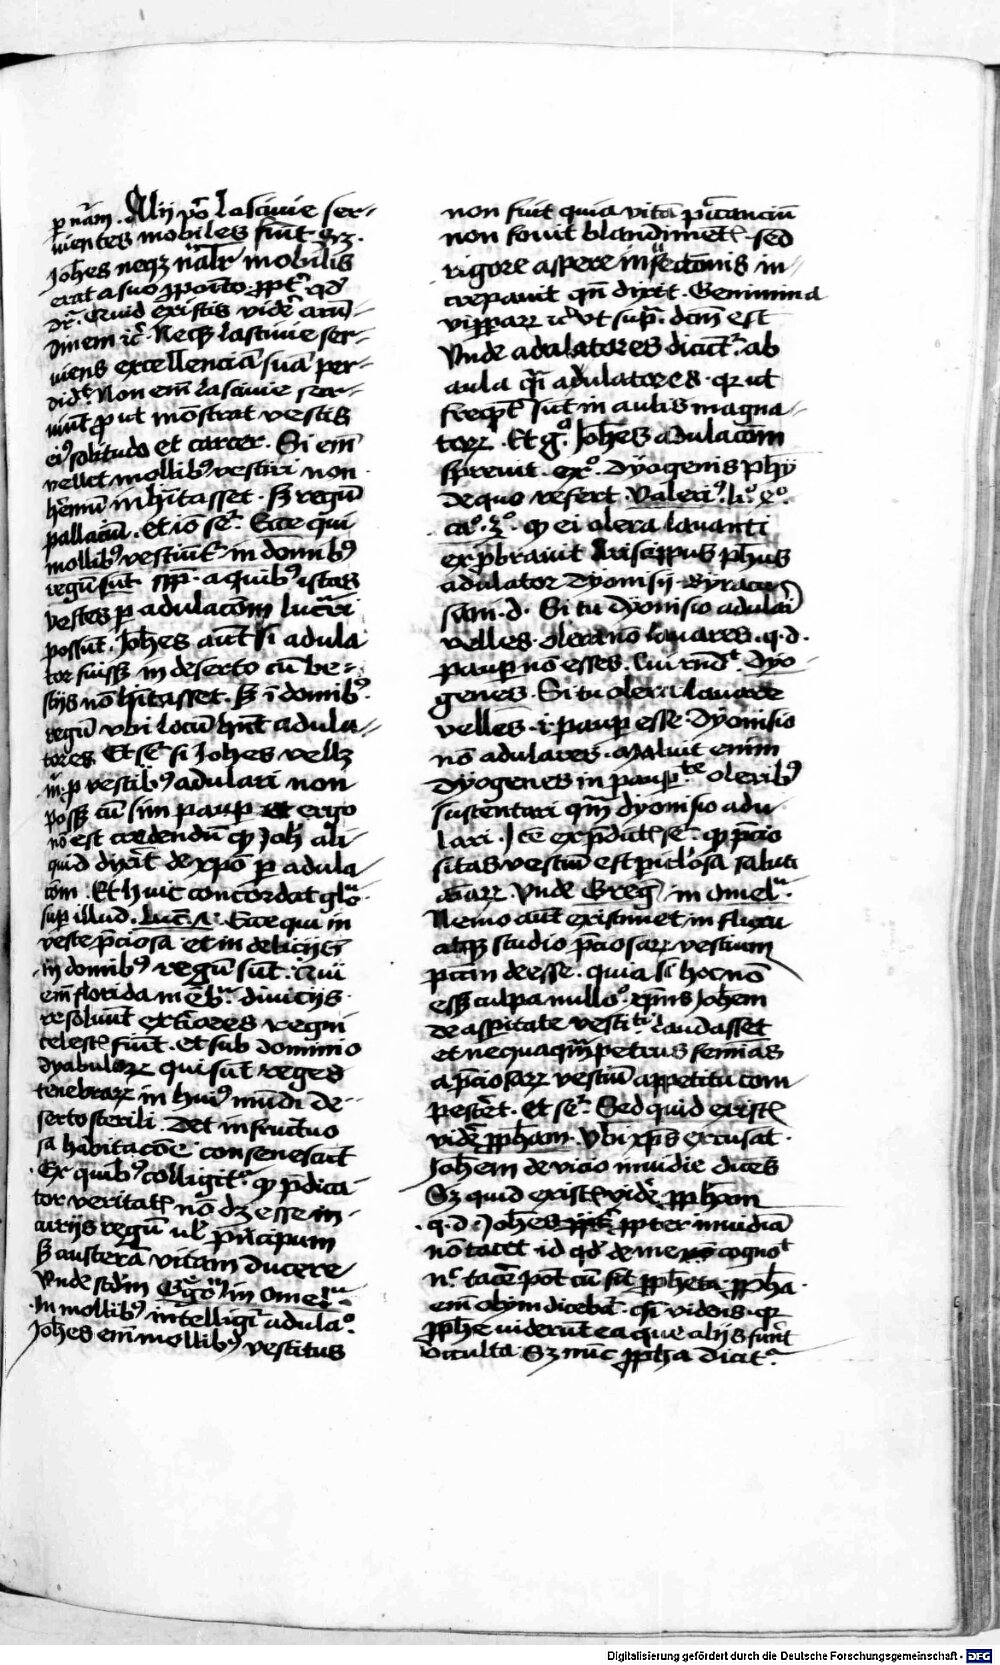 p nãm. Alij vo͂ lascivie ser-
vientes mobiles sunt ꝫ.
Johes neqꝫ nãlr mobilis
erat a suo ꝓposito. ꝓpt͛ qd
dr̃. Quid existis vide͛ arũ-
dinem ⁊c̃. Neqꝫ lascivie ser-
viens excellenciã suã per-
did͛. Non em̃ lascivie ser-
viũt ꝓut mõstrat vestis
eiꝰ solitudo et carcer. Si em̃
vellet mollibꝰ vestiri non
he͛mũ inhitasset. sꝫ regũ
pallaciũ. Et iõ se͛. Ecce qui
mollibꝰ vestiũt͛ in domibꝰ
regũ sũt. a quibꝰ istas
vestes p adulacõem lucrari
possũt. Johes aũt si adula
tor fuissꝫ in deserto cũ be-
stijs nõ hitasset. sꝫ ĩ domibꝰ
regũ vbi locũ hñt adula-
tores Et se͛ si Johes vellꝫ
p vestibꝰ adulari non
possꝫ cũ sim paup et ergo
nõ est credendũ qꝙ Joh ali
quid dixit de xp̃o p adula-
cõm. Et huic concordat glo͛
sup illud. Luc̃ Ecce qui in
veste p̃ciosa et in delicijs
in domibꝰ regũ sũt. Qui
em̃ florida me͛b͛ divicijs
resolvũt exteriores regni
celest͛ fiũt. et sub dominio
dyabuloꝝ qui sũt reges
tenebraꝝ in huiꝰ mũdi de-
serto sterili. Det infructuo
sa habitacõe consenescũt
Ex quibꝰ colligit͛ qꝙ p̃dica
tor veritat͛ nõ dꝫ esse in
curijs regũ ul͛ p̃ncipum
sꝫ austerã vitam ducere
Vnde scd̃m Grego͛m in Omel͛
In mollibꝰ intelligĩ adula͛.
Johes em̃ mollibꝰ vestitus
non fuit quia vitã p̃ccanciũ
non fovit blandimẽt͛. sed
rigore aspere invectionis in-
crepavit qñ dixit. Genimina
viꝑaꝝ ⁊c̃ vt sup͛. dc̃m est
Vnde adulatores dicũt͛ ab
aula q̃i adulatores. qr ut
freq̃nt͛ sũt in aulis magna-
toꝝ. Et gͦ Johes adulacõem
sprevit. ex̊. Dyogenis phỹ
de quo refert Valeriꝰ. li̊. 
cå. ꝙ ei olera lavanti
ex p̃bravit Aristippus phus
adulator Dyonisij Syracu
sani. d. Si tu dyonisio adulari
velles. olera nõ lavares. q.d.
paup nõ esses. Cui rñdͭ. Dyo-
genes. Si tu olera lavare
velles. i. paup esse Dyonisio
nõ adulares. Maluit enim
Dyogenes in paupͭͤ oleribꝰ
sustentari qm̃ dyonisio adu-
lari. Itẽ ex p̃dict͛ se͛. ꝙ p̃cio
sitas vestiũ est piclosa saluti
aĩaꝝ. Vnde Greg͛ in omel͛.
Nemo aũt existimet in fluxu
atqꝫ studio p̃ciosaꝝ vestium
pccm̃ deesse. quia si hoc nõ
essꝫ culpa nullo͛. xp̃us Johem
de aspitate vesti laudasset
et nequaqm̃ petrus feminas
a p̃ciosaꝝ vestiũ appetitu com-
pesce͛t. Et se͛. Sed quid exist͛
vide͛ ꝓpham. Vbi xp̃s excusat.
Johem de vicio invidie dices
Sꝫ quid exist͛ vide͛ ꝓpham
.q.d. Johes ꝓpter invidiã
nõ tacet id qd̛ de me cogno͛ͭ
n̊ tace͛ pot͛ cũ sit ꝓpheta. ꝓpha
em̃ olym dicebat͛ q̃i videns. qr
ꝓphe viderũt ea que alijs fue͛rt
occulta. Sꝫ nũc ꝓpha dicit͛
Digitalisierung gefördert durch die Deutsche Forschungsgemeinschaft - DFG